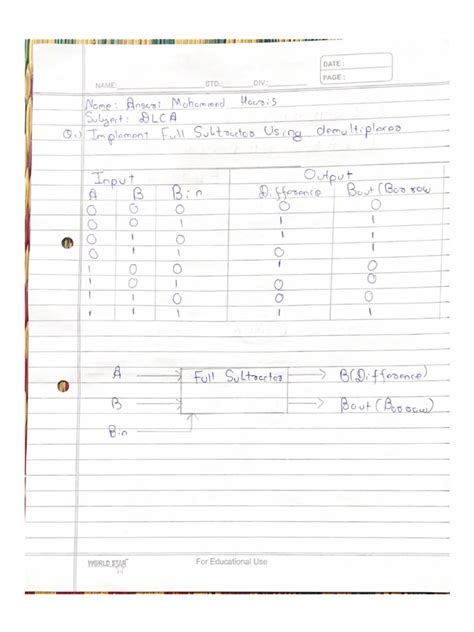 DATE :
PAGE :
NAME: STD.: DIV.:
Name: Ansari Mohammed Haaris
Subject: DLCA
Q.) Implement Full Subtractor Using demultiplexer
Input Output
A B Bin Difference Bout (Borrow
0 0 0 0 0
0 0 1 1 1
0 1 0 1 1
0 1 1 0 1
1 0 0 1 0
1 0 1 0 0
1 1 0 0 0
1 1 1 1 1
A Full Subtractor B(Difference)
B Bout (Borrow)
Bin
WORLD STAR For Educational Use